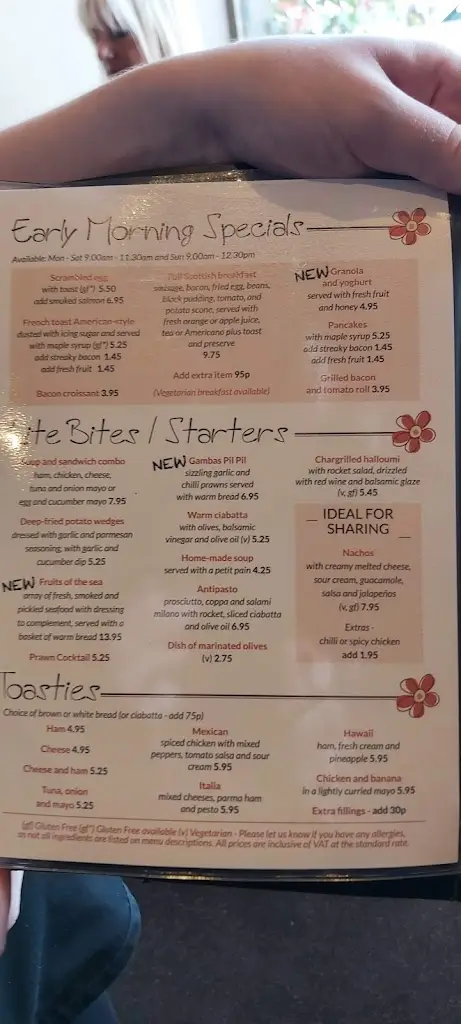 Early Morning Specials
Available: Mon - Sat 9.00am - 11.30am and Sun 9.00am - 12.30pm
Scrambled egg
with toast (gf*) 5.50
add smoked salmon 6.95
French toast American-style
dusted with icing sugar and served
with maple syrup (gf*) 5.25
add streaky bacon 1.45
add fresh fruit 1.45
Bacon croissant 3.95
Full Scottish breakfast
sausage, bacon, fried egg, beans,
black pudding, tomato, and
potato scone, served with
fresh orange or apple juice,
tea or Americano plus toast
and preserve
9.75
Add extra item 95p
(Vegetarian breakfast available)
NEW Granola
and yoghurt
served with fresh fruit
and honey 4.95
Pancakes
with maple syrup 5.25
add streaky bacon 1.45
add fresh fruit 1.45
Grilled bacon
and tomato roll 3.95
ite Bites / Starters
Soup and sandwich combo
ham, chicken, cheese,
tuna and onion mayo or
egg and cucumber mayo 7.95
Deep-fried potato wedges
dressed with garlic and parmesan
seasoning, with garlic and
cucumber dip 5.25
NEW Fruits of the sea
array of fresh, smoked and
pickled seafood with dressing
to complement, served with a
basket of warm bread 13.95
Prawn Cocktail 5.25
NEW Gambas Pil Pil
sizzling garlic and
chilli prawns served
with warm bread 6.95
Warm ciabatta
with olives, balsamic
vinegar and olive oil (v) 5.25
Home-made soup
served with a petit pain 4.25
Antipasto
prosciutto, coppa and salami
milano with rocket, sliced ciabatta
and olive oil 6.95
Dish of marinated olives
(v) 2.75
Chargrilled halloumi
with rocket salad, drizzled
with red wine and balsamic glaze
(v, gf) 5.45
IDEAL FOR
SHARING
Nachos
with creamy melted cheese,
sour cream, guacamole,
salsa and jalapeños
(v, gf) 7.95
Extras -
chilli or spicy chicken
add 1.95
Toasties
Choice of brown or white bread (or ciabatta - add 75p)
Ham 4.95
Cheese 4.95
Cheese and ham 5.25
Tuna, onion
and mayo 5.25
Mexican
spiced chicken with mixed
peppers, tomato salsa and sour
cream 5.95
Italia
mixed cheeses, parma ham
and pesto 5.95
Hawaii
ham, fresh cream and
pineapple 5.95
Chicken and banana
in a lightly curried mayo 5.95
Extra fillings - add 30p
(gf) Gluten Free (gf*) Gluten Free available (v) Vegetarian - Please let us know if you have any allergies,
as not all ingredients are listed on menu descriptions. All prices are inclusive of VAT at the standard rate.